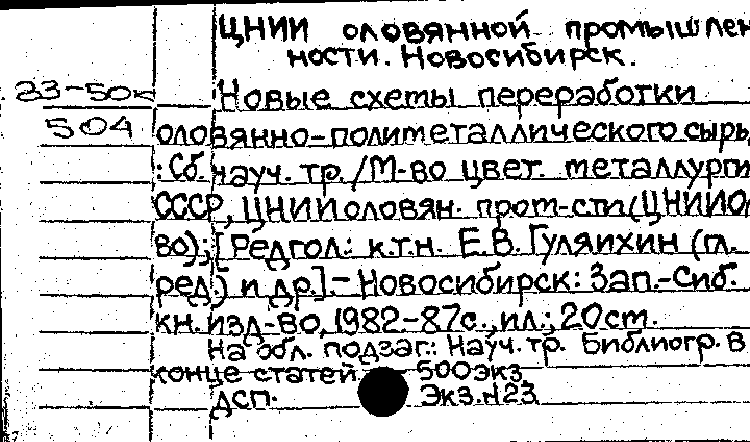 ЦНИИ оловянной промышлен
ности. Новосибирск.
23-50к Новые схемы переработки
504 оловянно-полиметаллического сырь
: Сб. науч. тр. / М-во цвет. металлурги
СССР, ЦНИИ оловян. пром-сти (ЦНИИО
во); [Редгол.: к.т.н. Е.В. Гуляихин (гл.
ред.) и др.].- Новосибирск: Зап.-Сиб.
кн. изд-во, 1982-87с., ил.; 20cm.
На обл. подзаг.: Науч. тр. Библиогр. в
конце статей 500экз
ДСП. Экз.№23